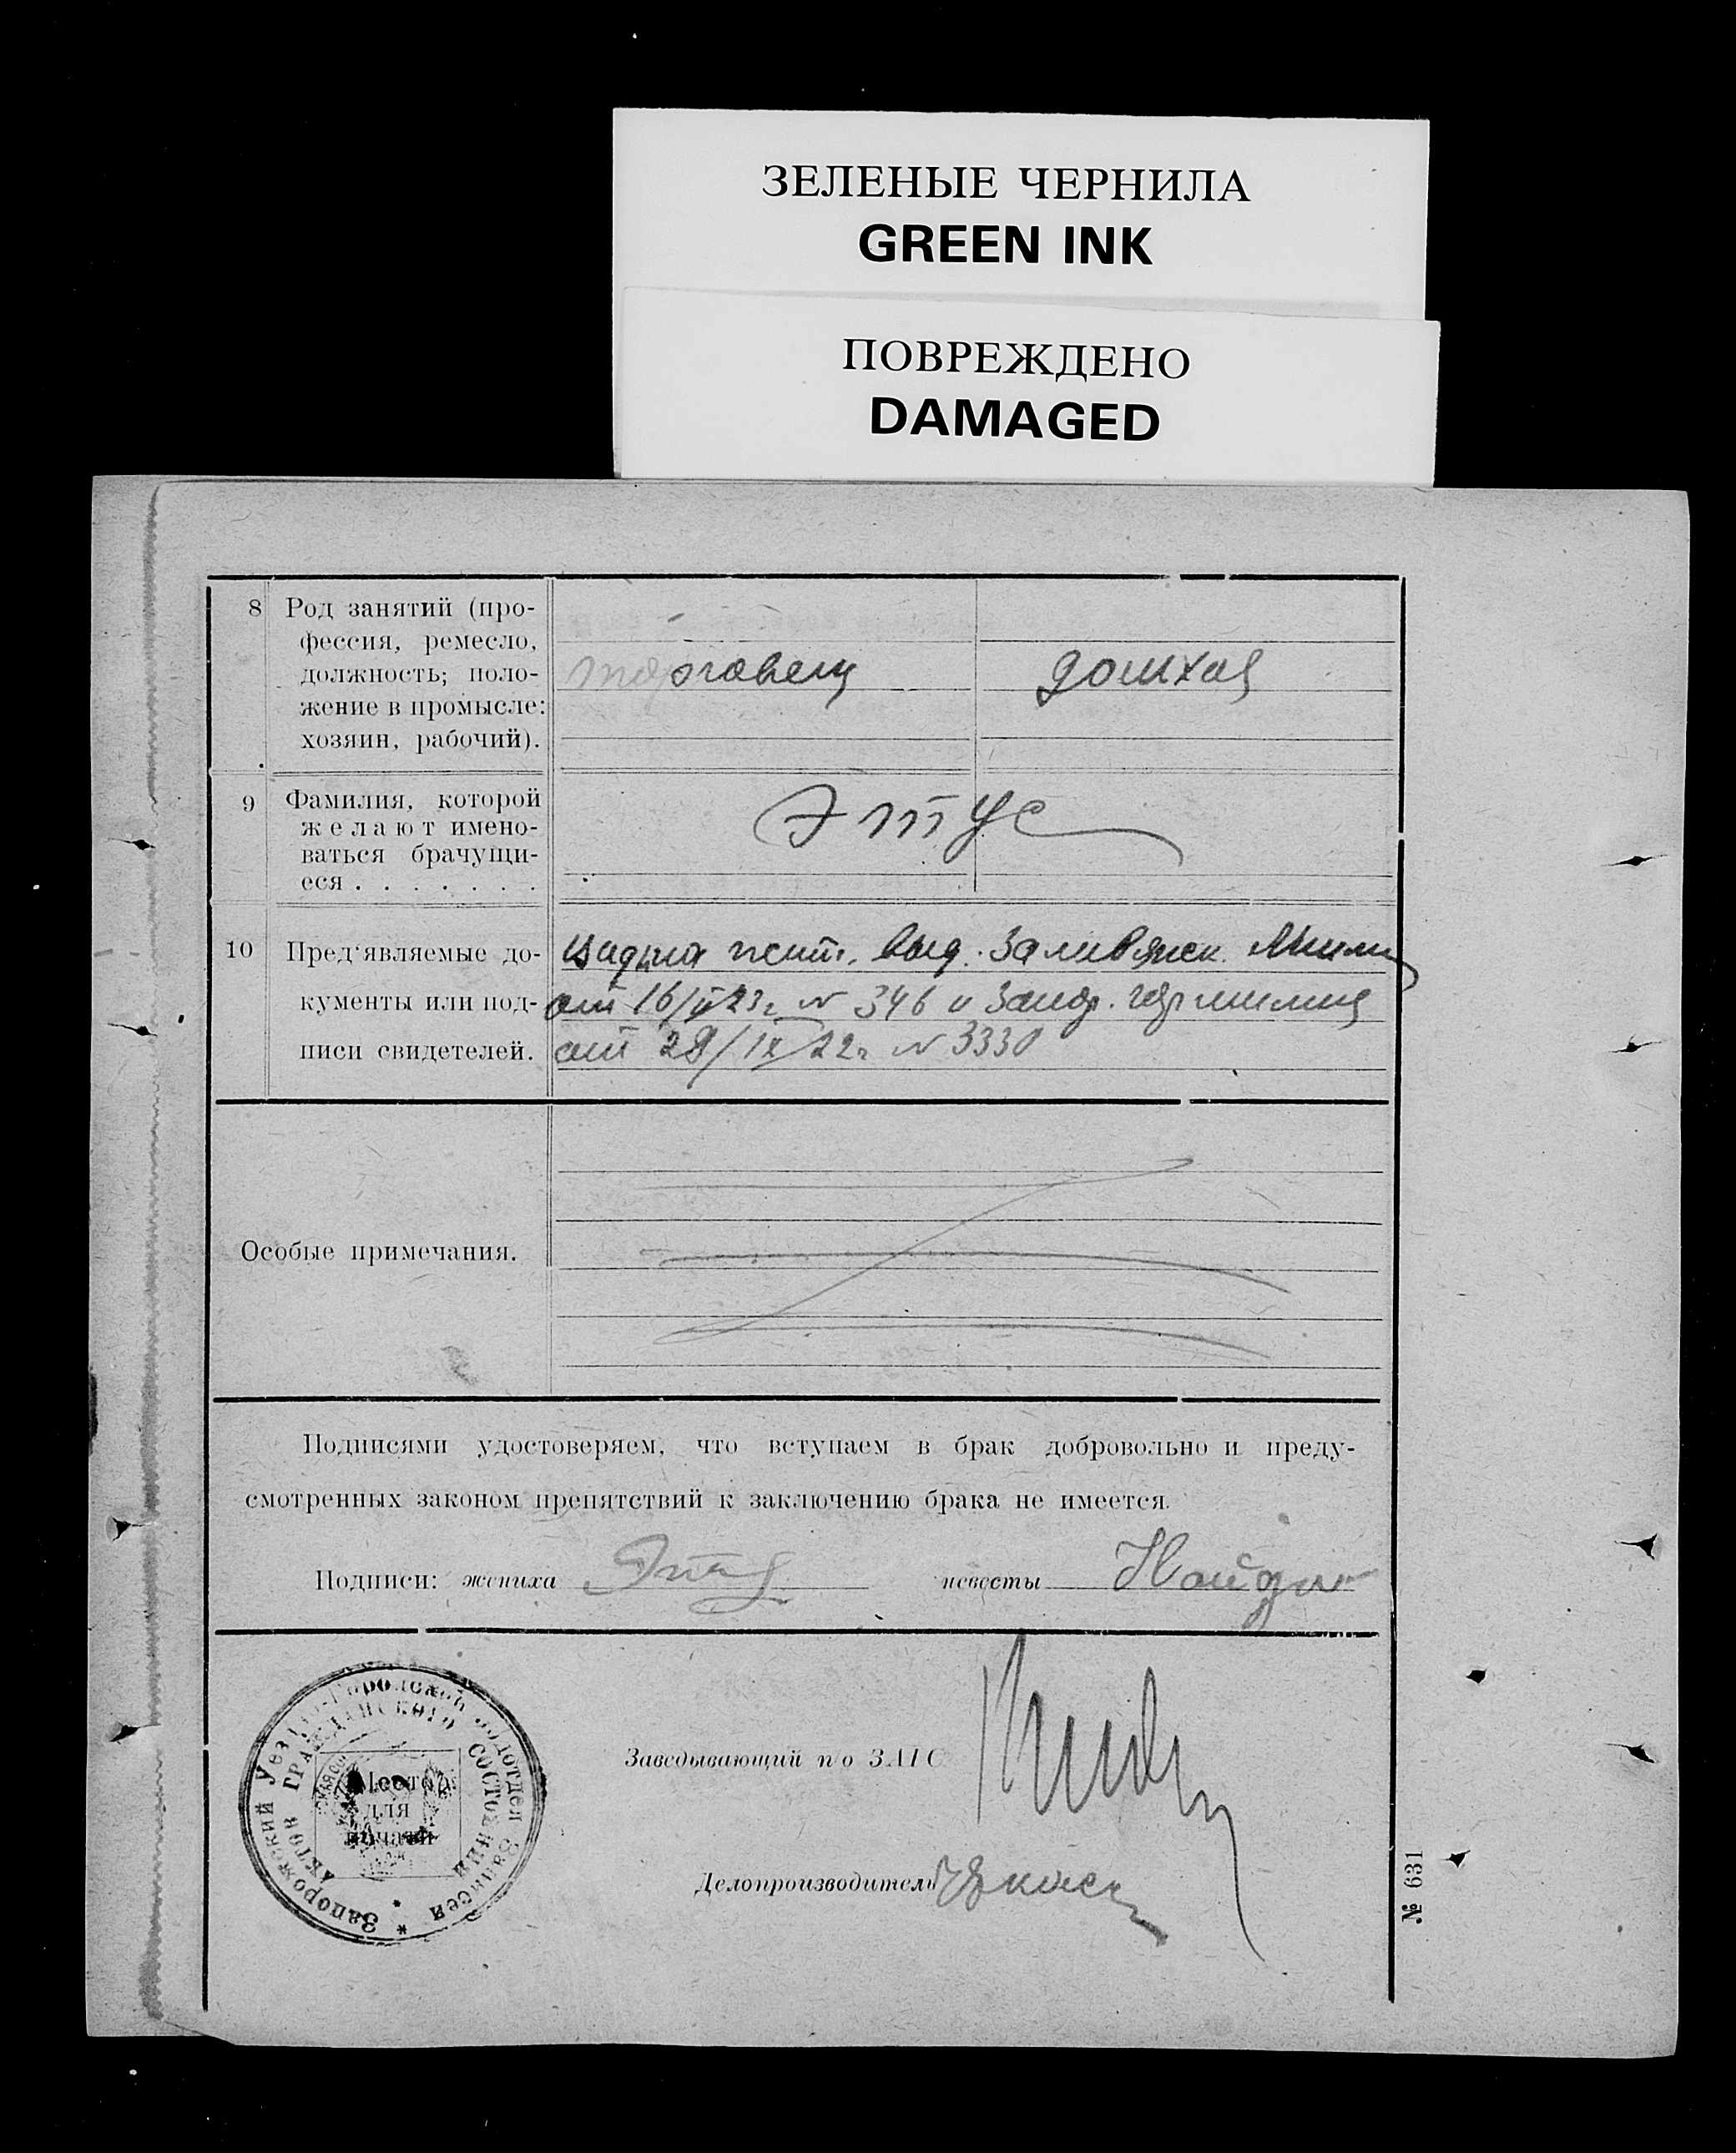 ЗЕЛЕНЫЕ ЧЕРНИЛА
GREEN INK
ПОВРЕЖДЕНО
DAMAGED
8 Род занятий (про-
фессия, ремесло,
должность; поло-
жение в промысле:
хозяин, рабочий).
торговец
домхоз
9 Фамилия, которой
желают имено-
ваться брачущи-
еся . . . . . . .
Этус
10 Пред'являемые до-
кументы или под-
писи свидетелей.
выд.
от 16/ 23г. N 346 и
от 28/IX 22г N 3330
Особые примечания.
Подписями удостоверяем, что вступаем в брак добровольно и преду-
смотренных законом препятствий к заключению брака не имеется.
Подписи: жениха невесты
Запорожский Уездно-Городской подотдел Записей *
АКТОВ ГРАЖДАНСКОГО СОСТОЯНИЯ
Место
для
печати
Заведывающий п/о ЗАГС
Делопроизводитель
№ 631